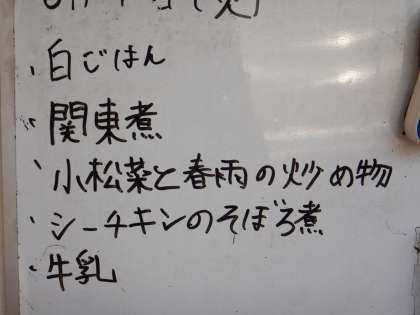 ・白ごはん
・関東煮
・小松菜と春雨の炒め物
・シーチキンのそぼろ煮
・牛乳